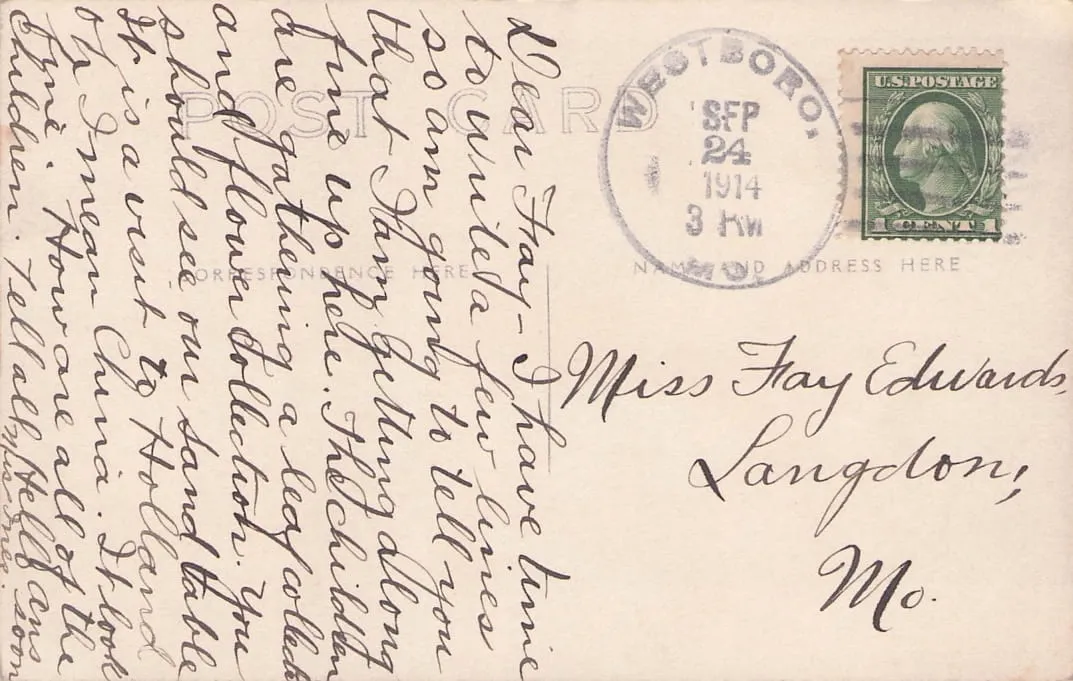 POST CARD
CORRESPONDENCE HERE
NAME AND ADDRESS HERE
WESTBORO,
SEP
24
1914
3 PM
MO.
U.S. POSTAGE
1 CENT 1
Dear Fay – I have time
to write a few lines
so am going to tell you
that I am getting along
fine up here. The children
are gathering a leaf collect
and flower collection. You
should see our sand table
It is a visit to Holland
oh I mean China. It look
fine. How are all of the
children. Tell all Hello ans
soon
Miss Fay Edwards,
Langdon,
Mo.